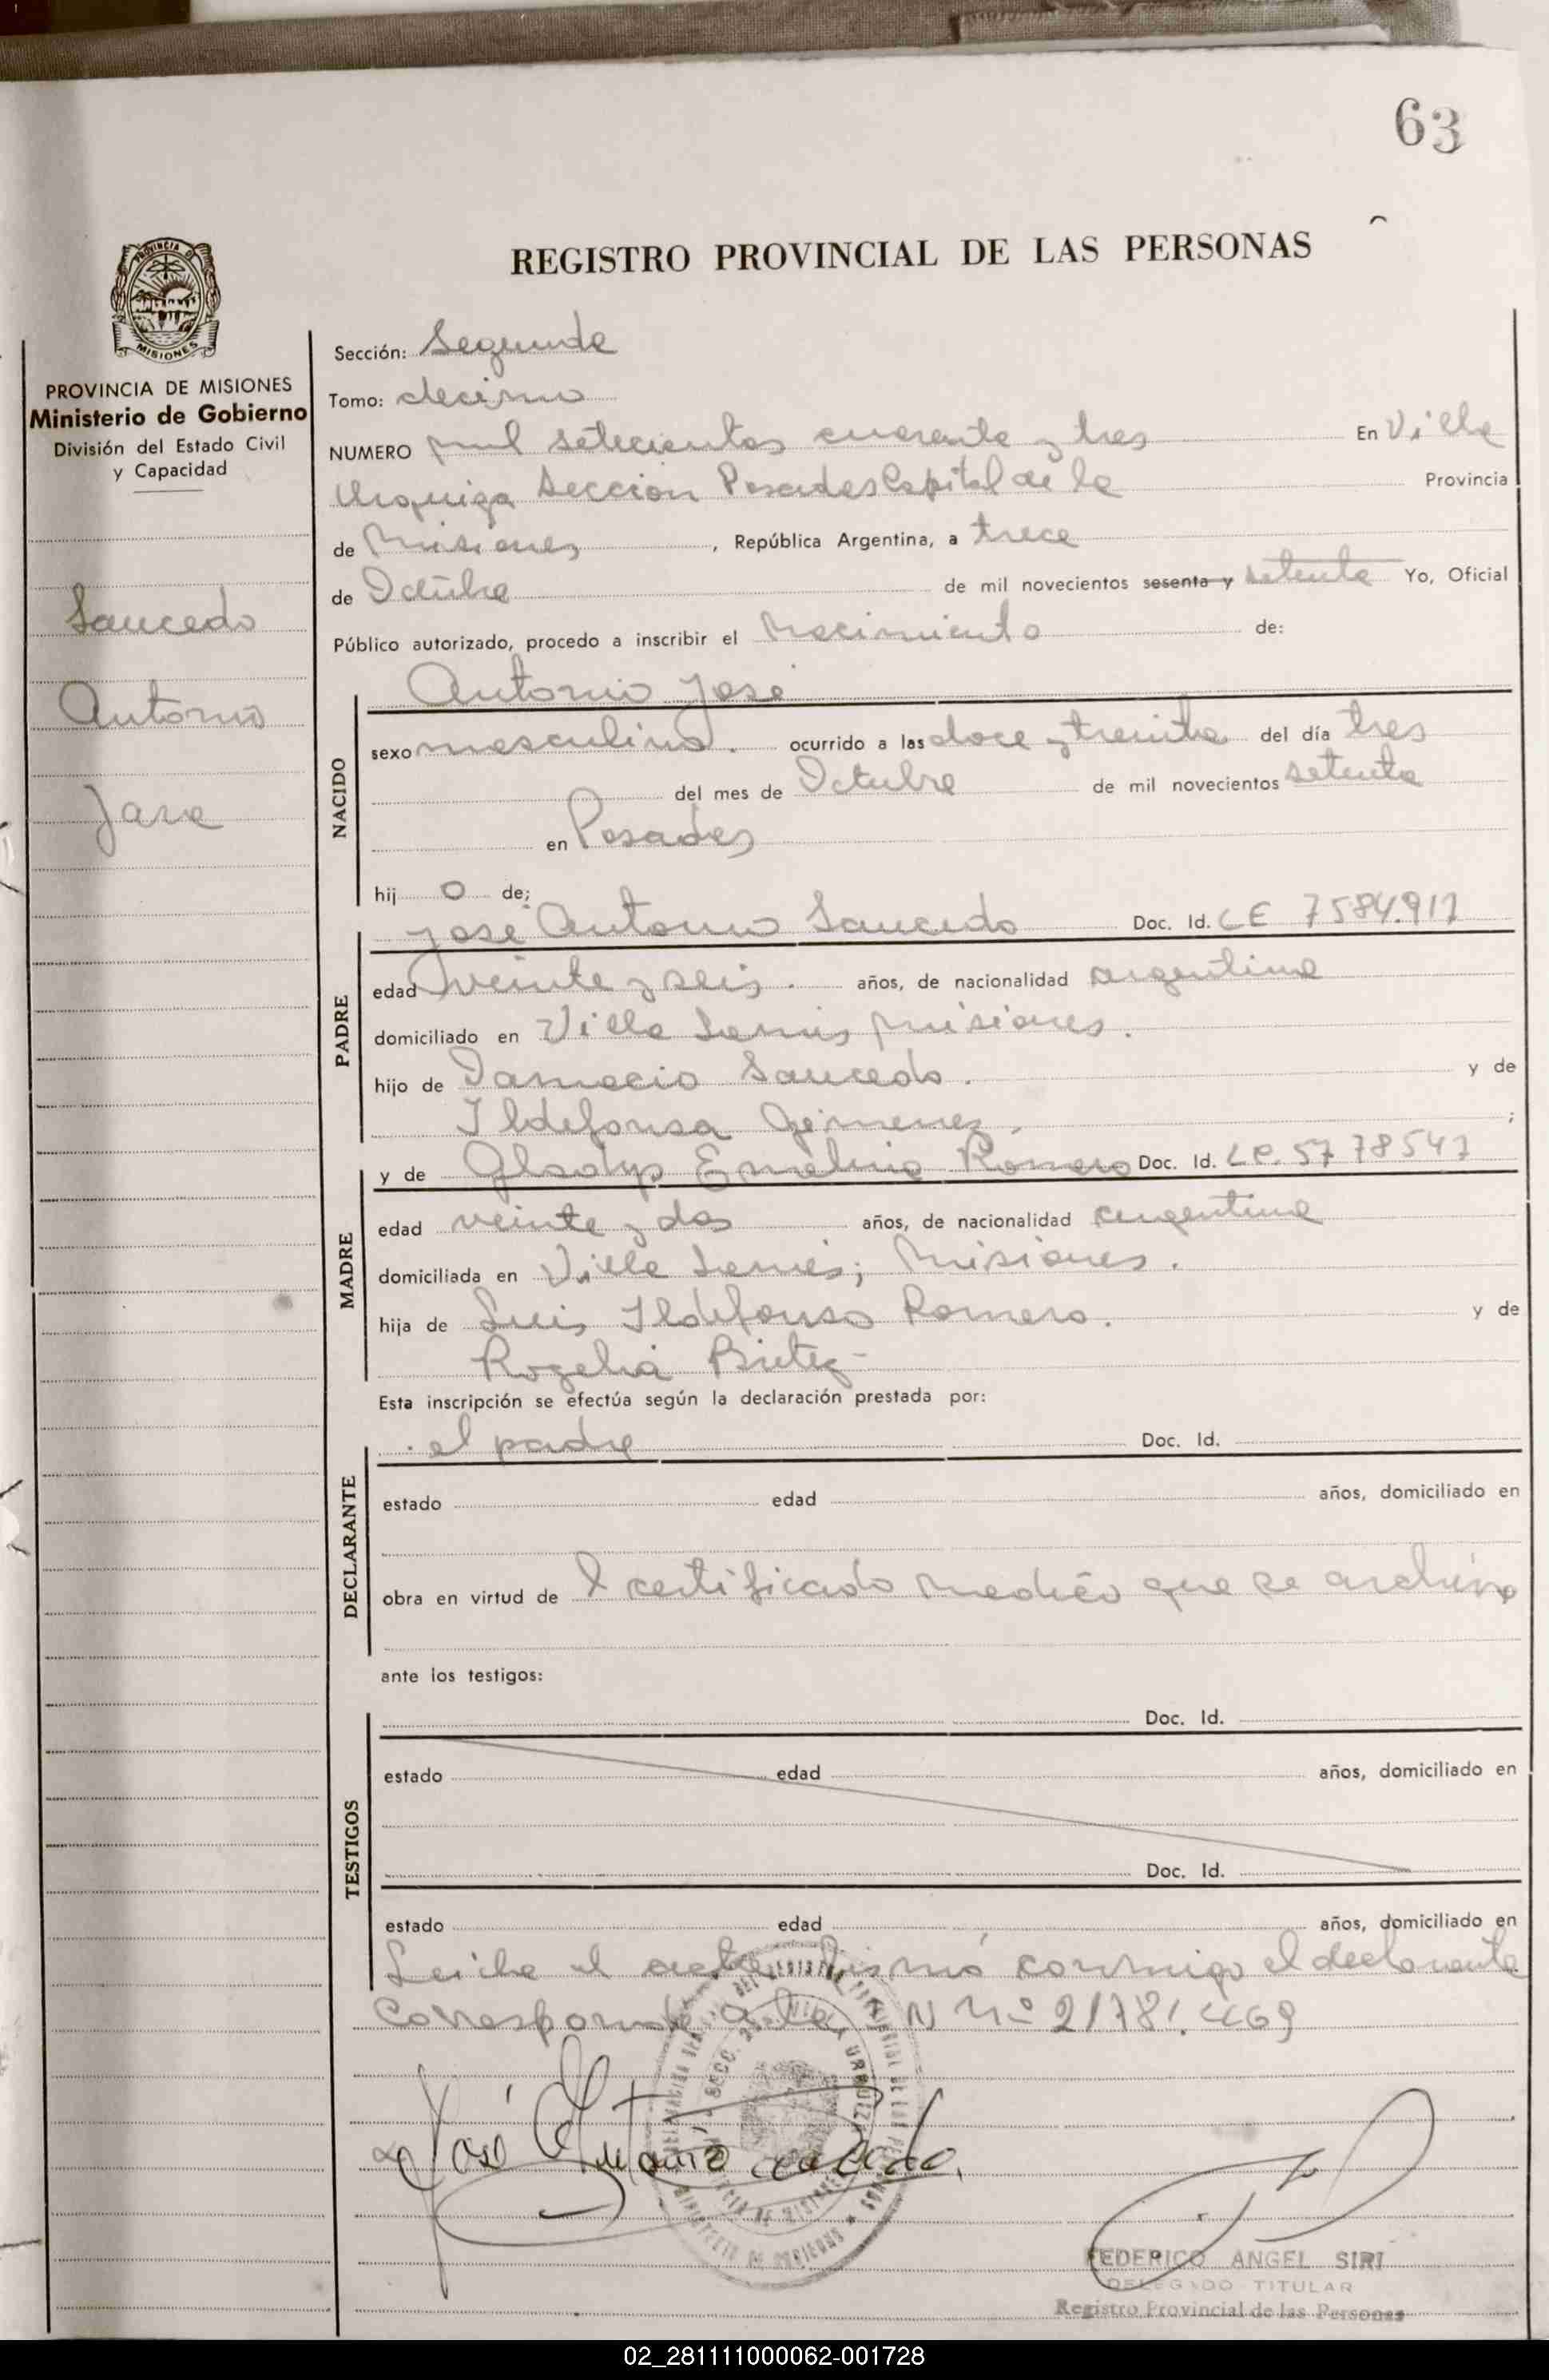 63
REGISTRO PROVINCIAL DE LAS PERSONAS
MISIONES
PROVINCIA DE MISIONES
Ministerio de Gobierno
División del Estado Civil
y Capacidad
Saucedo
Antonio
José
Sección: Segunda
Tomo: decimo
NUMERO mil setecientos cuarenta y tres En Villa
Urquiza Seccion Posadas Capital de la Provincia
de Misiones, República Argentina, a trece
de Octubre de mil novecientos sesenta y setenta Yo, Oficial
Público autorizado, procedo a inscribir el Nacimiento de:
Antonio José
NACIDO
sexo masculino. ocurrido a las doce y treinta del día tres
del mes de Octubre de mil novecientos setenta
en Posadas
hij o de;
José Antonio Saucedo Doc. Id. LE 7584.917
PADRE
edad veinte y seis. años, de nacionalidad argentina
domiciliado en Villa Lanus Misiones.
hijo de Damacio Saucedo. y de
Ildefonsa Gimenez. ;
y de Gladys Emelina Romero Doc. Id. LC. 5778547
MADRE
edad veinte y dos años, de nacionalidad argentina
domiciliada en Villa Lanus; Misiones.
hija de Luis Ildefonso Romero. y de
Rogelia
Esta inscripción se efectúa según la declaración prestada por:
el padre Doc. Id.
DECLARANTE
estado edad años, domiciliado en
obra en virtud de l certificado medico que se archiva
ante los testigos:
Doc. Id.
TESTIGOS
estado edad años, domiciliado en
Doc. Id.
estado edad años, domiciliado en
Leida el acta firmó conmigo el declarante
Corresponde a la N Nº 21781.469
José Antonio Saucedo.
FEDERICO ANGEL SIRI
DELEGADO TITULAR
Registro Provincial de las Personas
02_281111000062-001728